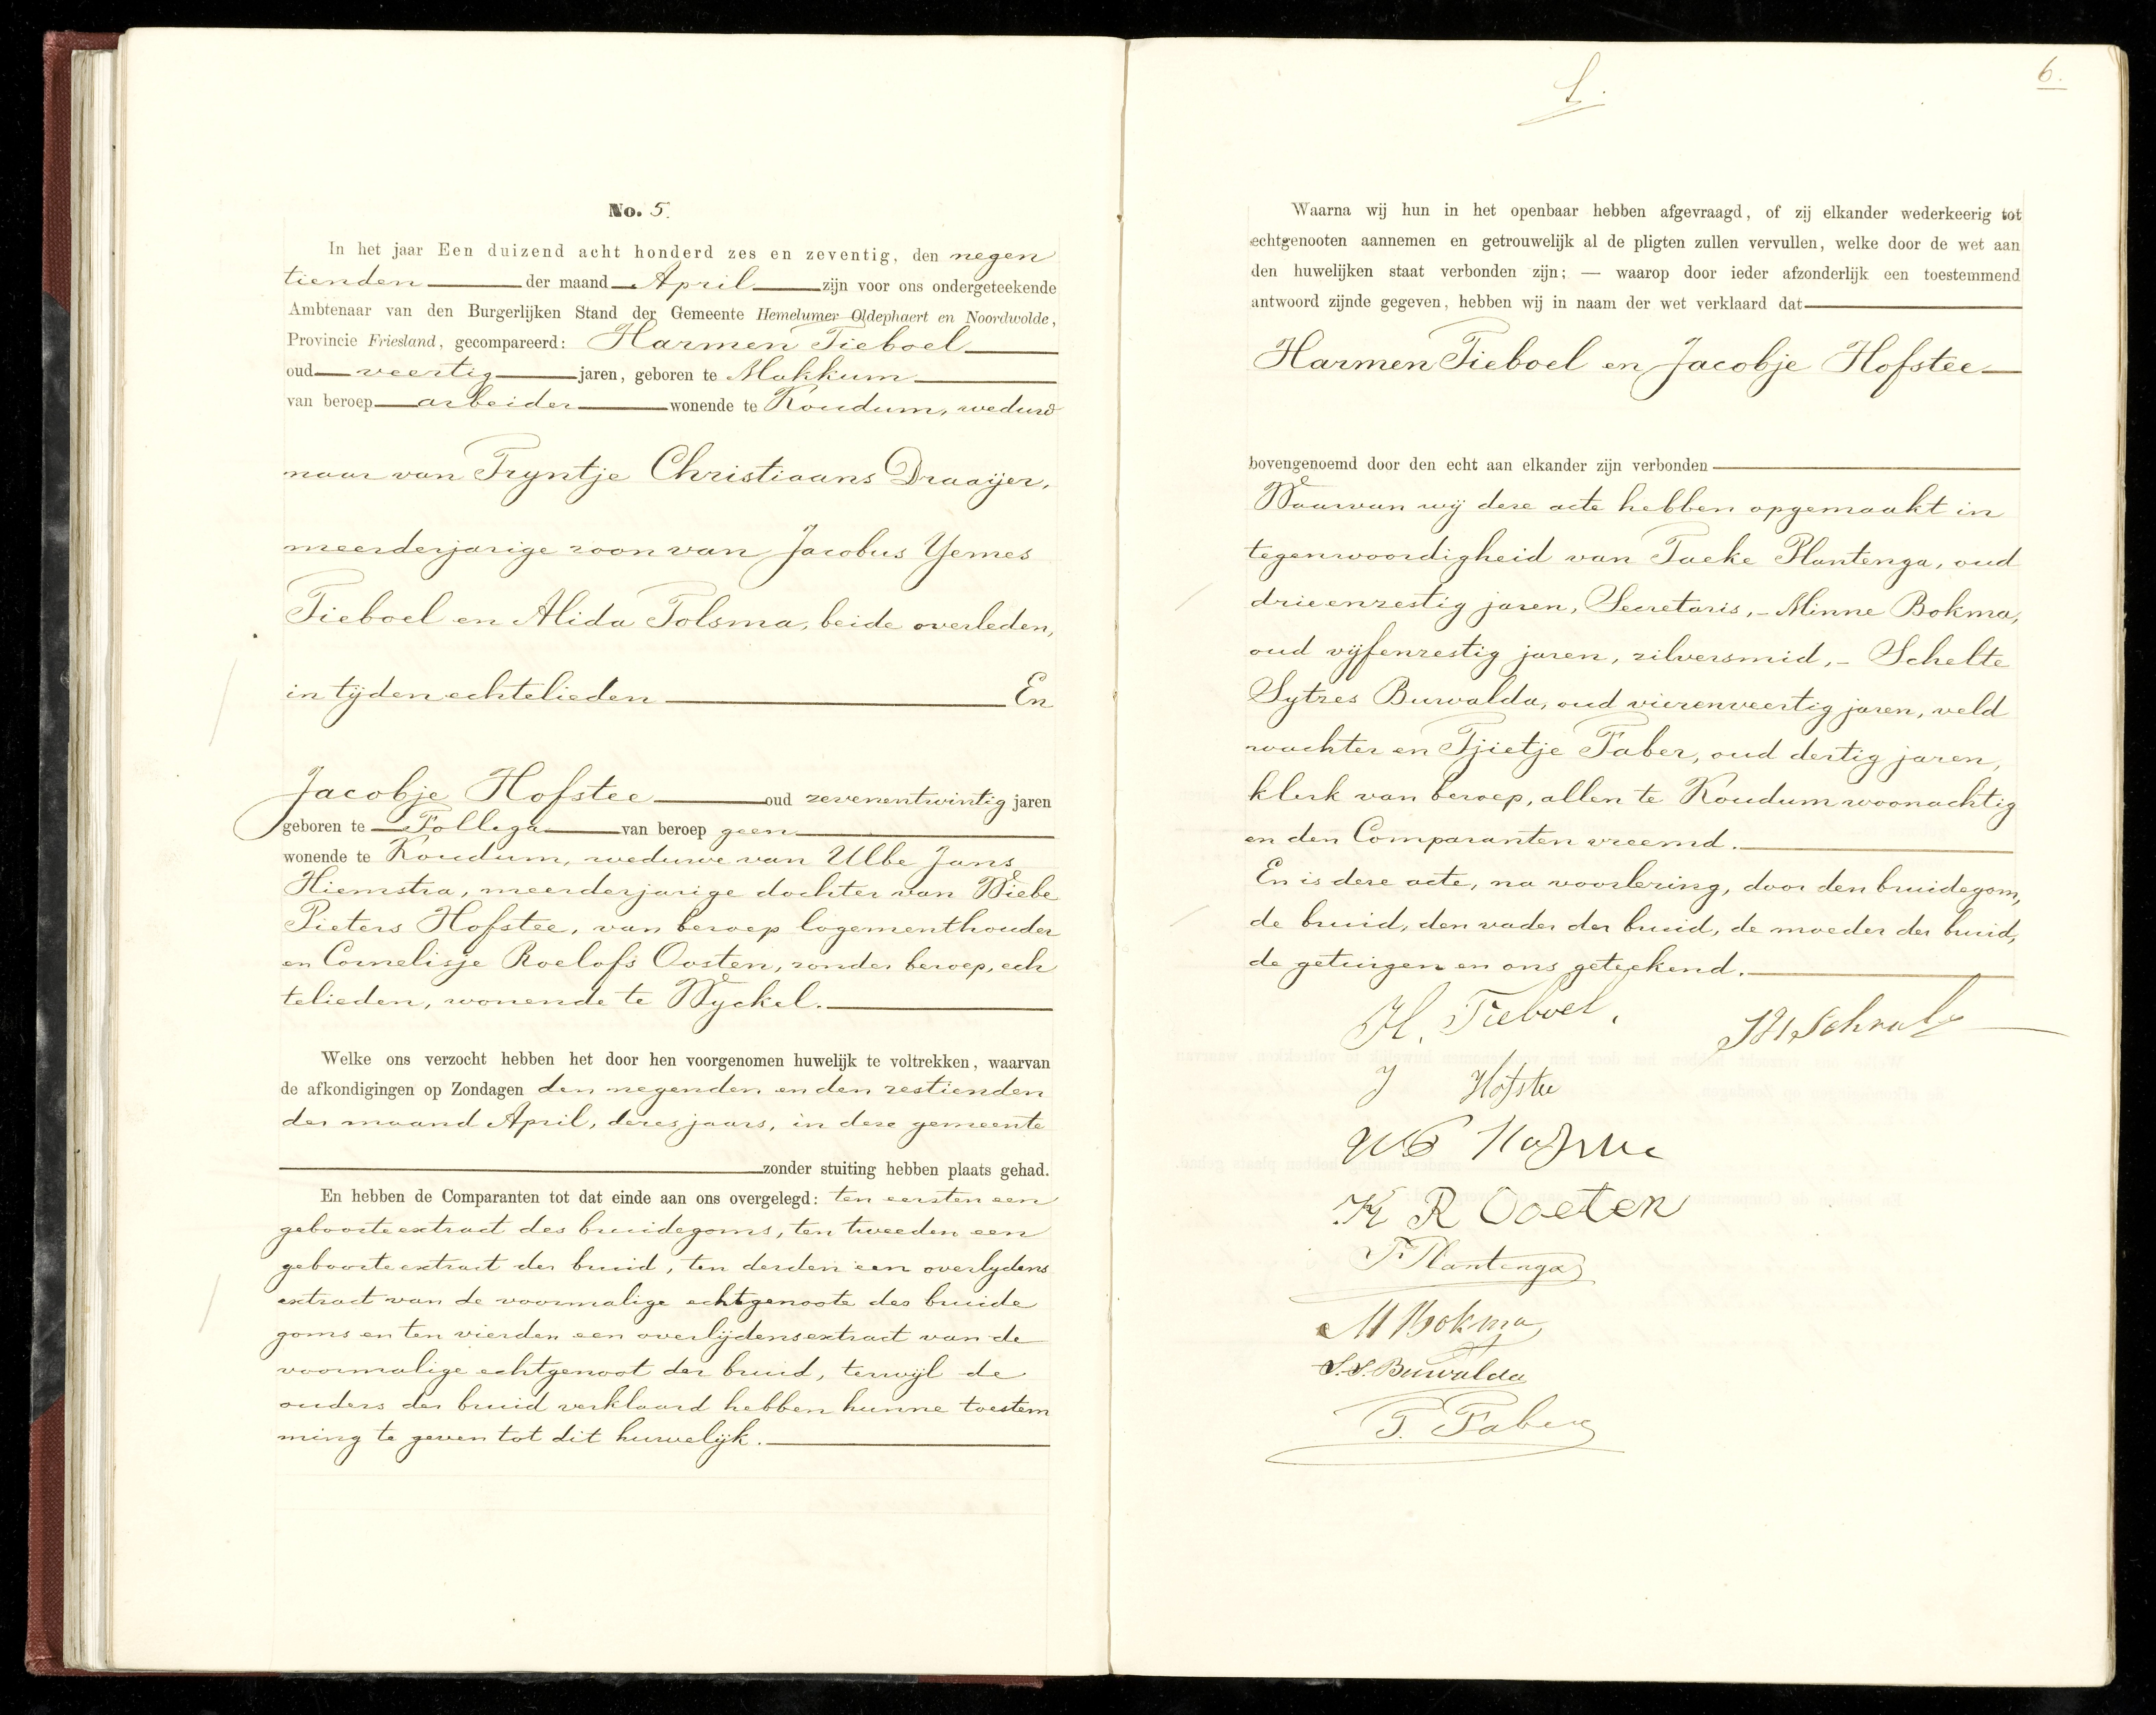 No. 5.
In het jaar Een duizend acht honderd zes en zeventig, den negen
tienden der maand April zijn voor ons ondergeteekende
Ambtenaar van den Burgerlijken Stand der Gemeente Hemelumer Oldephaert en Noordwolde,
Provincie Friesland, gecompareerd: Harmen Tieboel
oud veertig jaren, geboren te Makkum
van beroep arbeider wonende te Koudum, weduw
naar van Tryntje Christiaans Draaijer,
meerderjarige zoon van Jacobus Yemes
Tieboel en Alida Tolsma, beide overleden,
in tijden echtelieden En
Jacobje Hofstee oud zevenentwintig jaren
geboren te Follega van beroep geen
wonende te Koudum, weduwe van Ulbe Jans
Hiemstra, meerderjarige dochter van Wiebe
Pieters Hofstee, van beroep logementhouder
en Cornelisje Roelofs Oosten, zonder beroep, ech
telieden, wonende te Wyckel.
Welke ons verzocht hebben het door hen voorgenomen huwelijk te voltrekken, waarvan
de afkondigingen op Zondagen den negenden en den zestienden
der maand April, dezes jaars, in deze gemeente
zonder stuiting hebben plaats gehad.
En hebben de Comparanten tot dat einde aan ons overgelegd: ten eersten een
geboorteextract des bruidegoms, ten tweeden een
geboorteextract der bruid, ten derden een overlydens
extract van de voormalige echtgenoote des bruide
goms en ten vierden een overlijdensextract van de
voormalige echtgenoot der bruid, terwijl de
ouders der bruid verklaard hebben hunne toestem
ming te geven tot dit huwelijk.
6.
Waarna wij hun in het openbaar hebben afgevraagd, of zij elkander wederkeerig tot
echtgenooten aannemen en getrouwelijk al de pligten zullen vervullen, welke door de wet aan
den huwelijken staat verbonden zijn; — waarop door ieder afzonderlijk een toestemmend
antwoord zijnde gegeven, hebben wij in naam der wet verklaard dat
Harmen Tieboel en Jacobje Hofstee
bovengenoemd door den echt aan elkander zijn verbonden
Waarvan wij deze acte hebben opgemaakt in
tegenwoordigheid van Taeke Plantenga, oud
drieenzestig jaren, Secretaris, - Minne Bokma,
oud vijfenzestig jaren, zilversmid, - Schelte
Sytzes Buwalda, oud vierenveertig jaren, veld
wachter en Tjietje Faber, oud dertig jaren,
klerk van beroep, allen te Koudum woonachtig
en den Comparanten vreemd.
En is deze acte, na voorlezing, door den bruidegom,
de bruid, den vader der bruid, de moeder der bruid,
de getuigen en ons geteekend.
H. Tieboel.
J Hofstee
K R Oosten
T. Plantenga
M Bokma
S.S. Buwalda
T. Faber